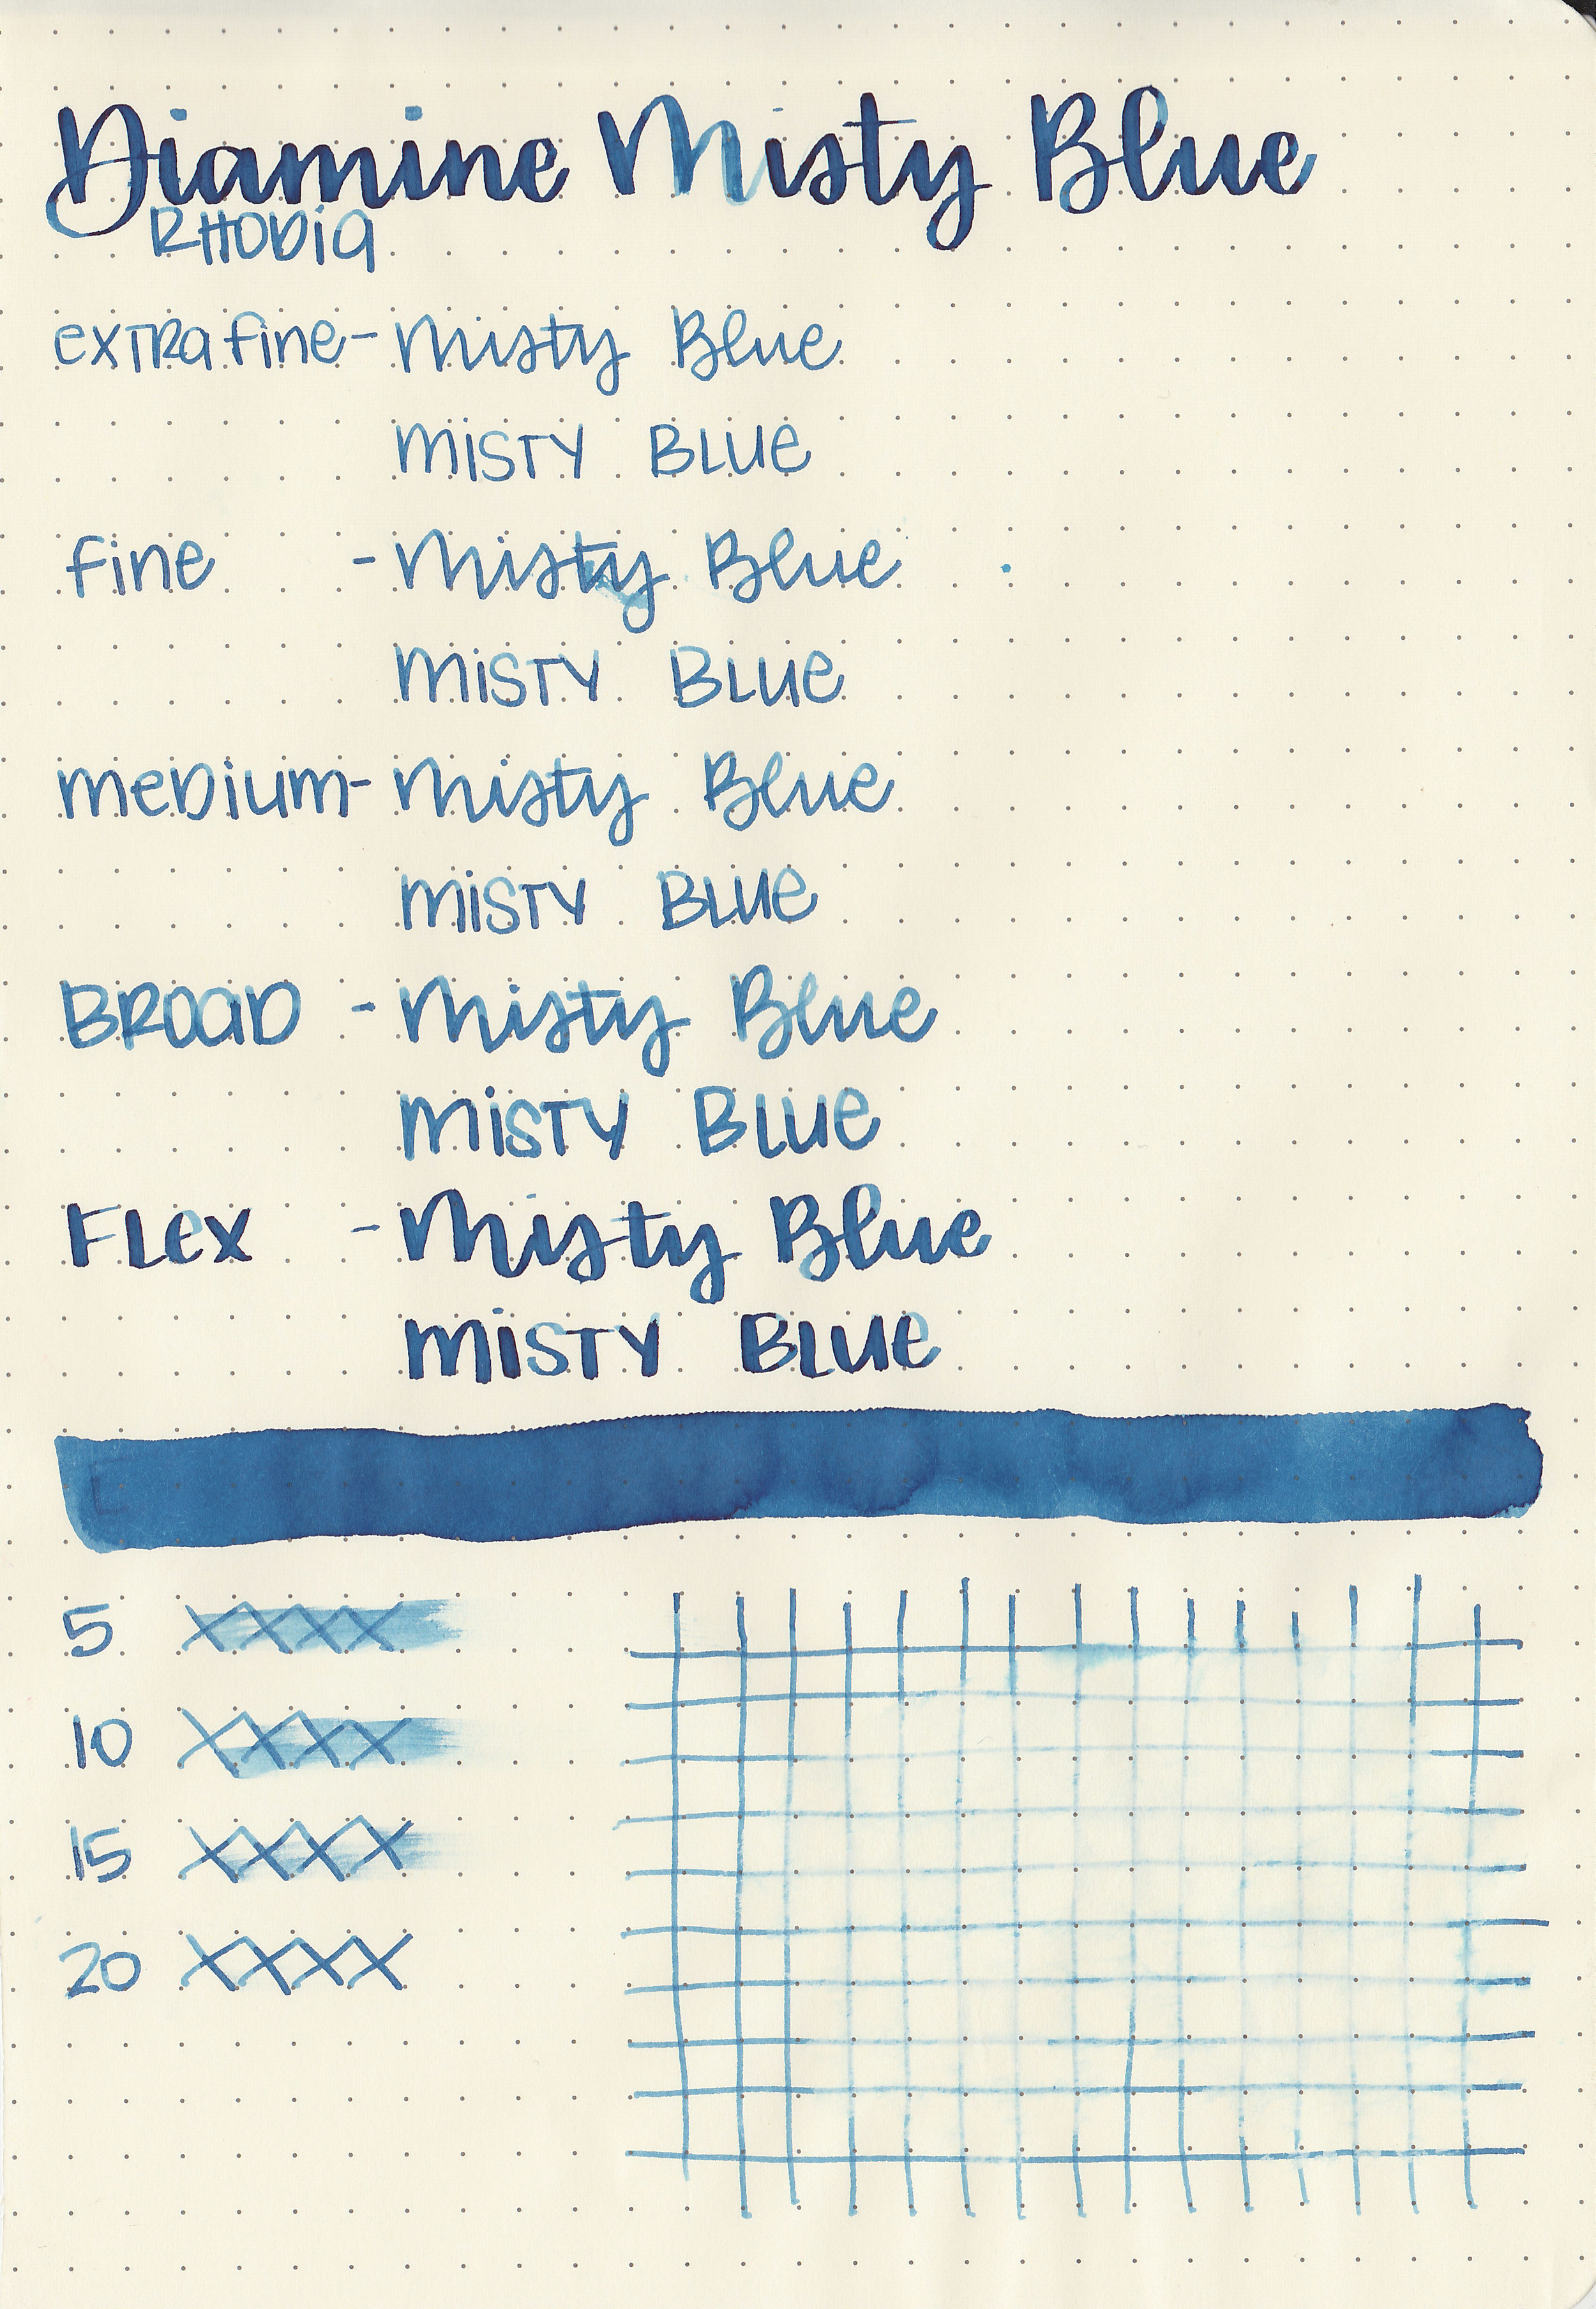 Diamine Misty Blue
RHODia
extRa fine - Misty Blue
MiSTY BLUe
fine - Misty Blue
MiSTY BLUe
meDium - Misty Blue
MiSTY BLUe
BROaD - Misty Blue
MiSTY BLUe
FLex - Misty Blue
MiSTY BLUe
5 XXXX
10 XXXX
15 XXXX
20 XXXX